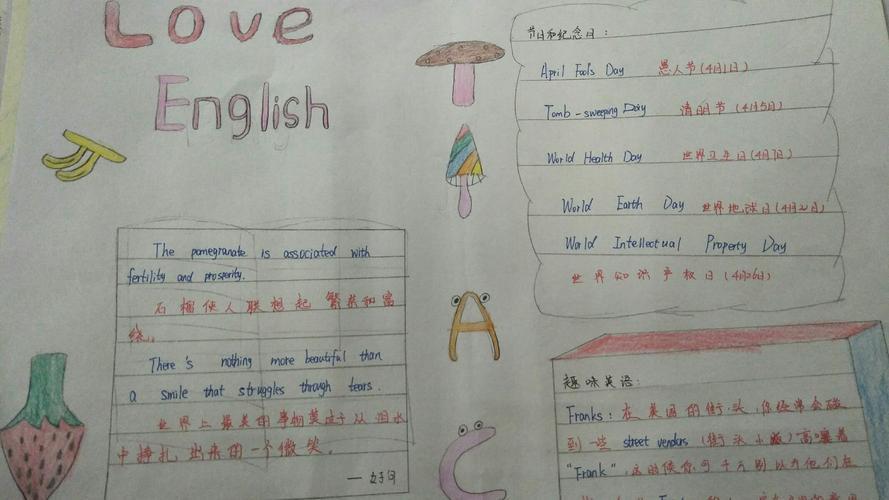 Love
English
The pomegranate is associated with
fertility and prosperity.
石榴使人联想起繁荣和富
饶。
There's nothing more beautiful than
a smile that struggles through tears.
世界上最美的事物莫过于从泪水
中挣扎出来的一个微笑。
——好句
A
C
节日和纪念日：
April Fools Day 愚人节(4月1日)
Tomb-sweeping Day 清明节(4月5日)
World Health Day 世界卫生日(4月7日)
World Earth Day 世界地球日(4月22日)
World Intellectual Property Day
世界知识产权日(4月26日)
趣味英语：
Franks：在美国的街头，你经常会碰
到一些 street vendors (街头小贩)高嚷着
"Frank"，这时候你可千万别以为他们在